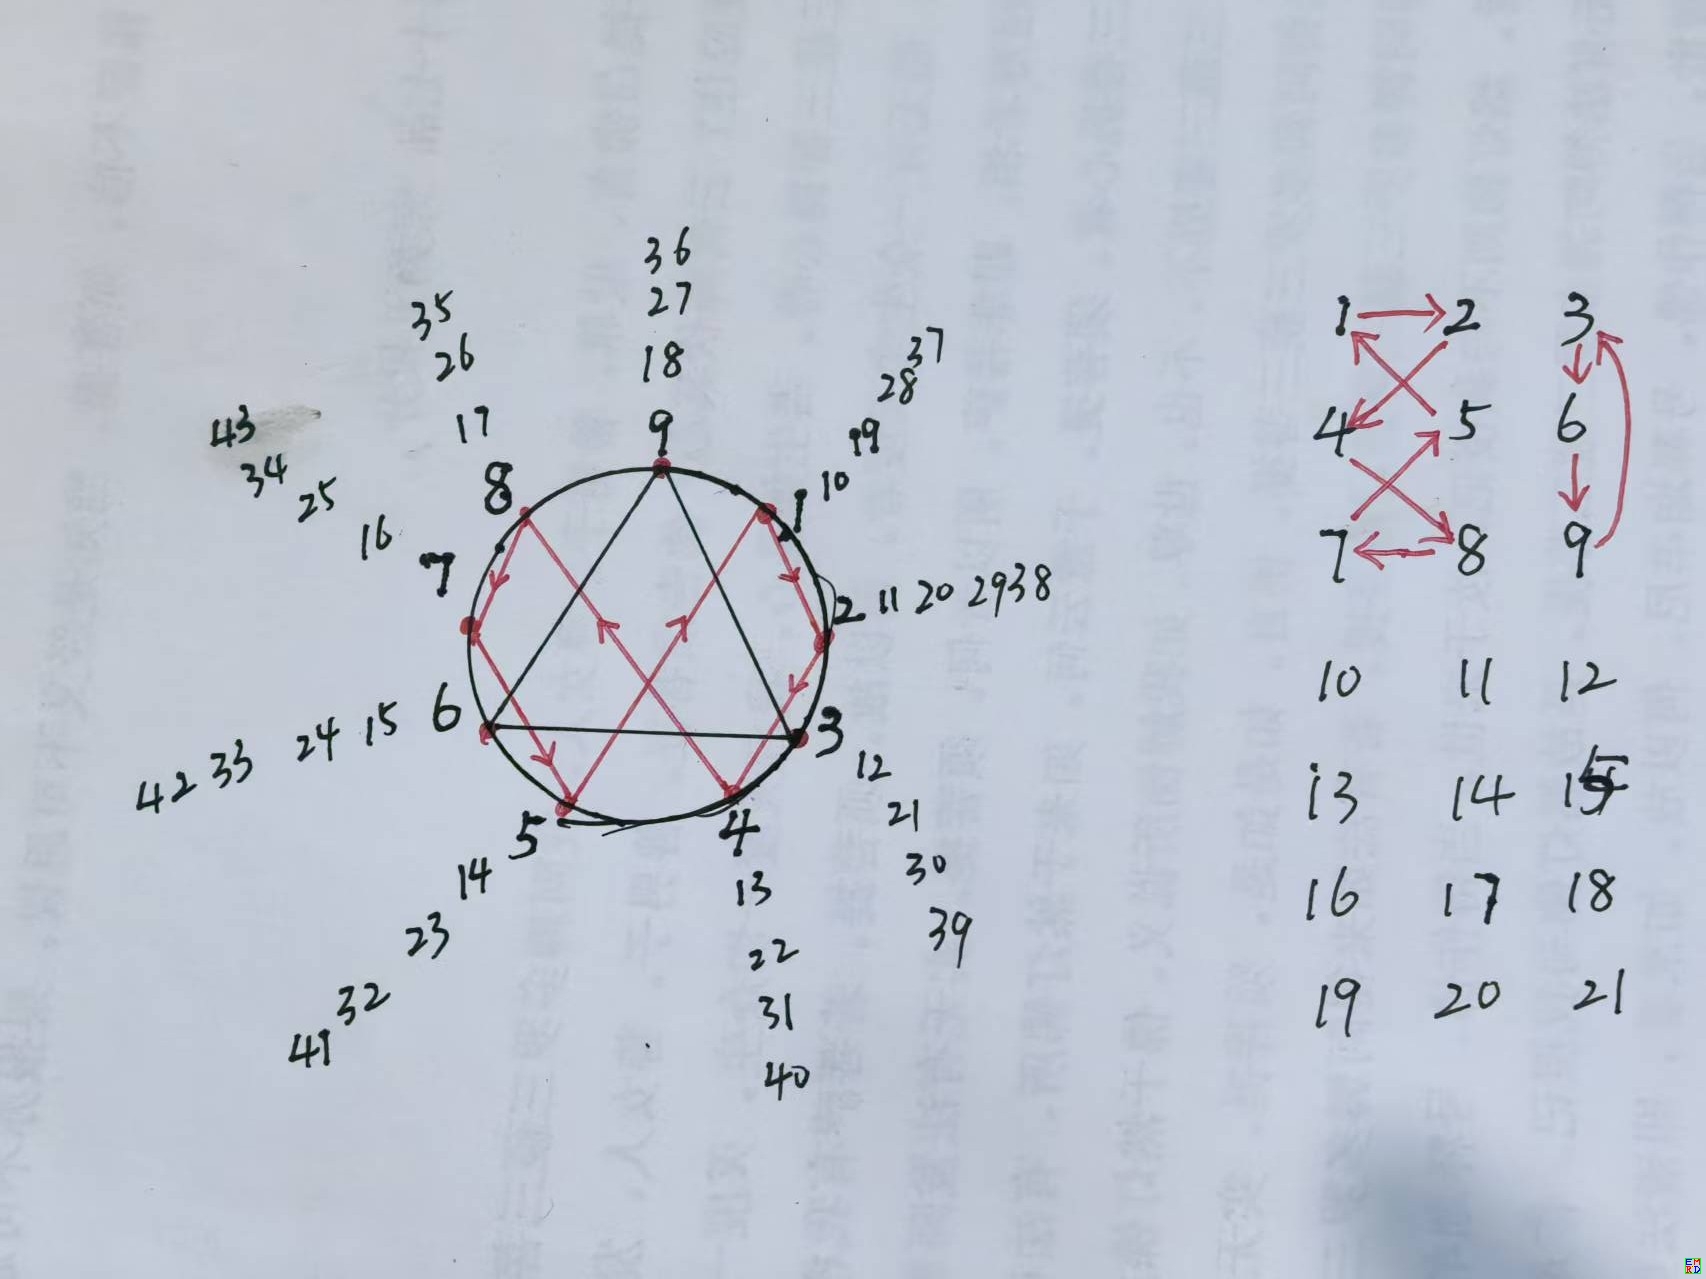 36
27
18
9
35
26
17
8
37
28
19
10
1
43
34
25
16
7
2 11 20 29 38
42 33 24 15 6
3
12
21
30
39
5
14
23
32
41
4
13
22
31
40
1 2 3
4 5 6
7 8 9
10 11 12
13 14 15
16 17 18
19 20 21